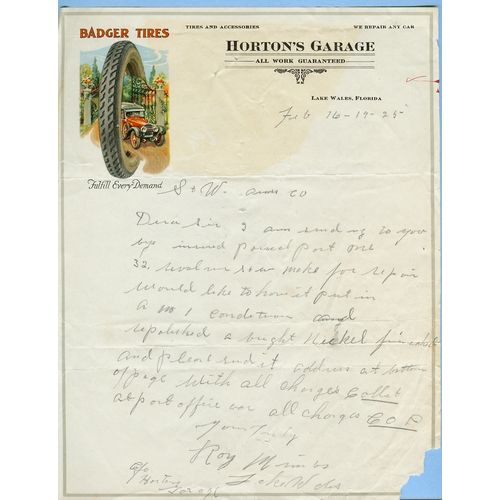 BADGER TIRES
TIRES AND ACCESSORIES
WE REPAIR ANY CAR
HORTON'S GARAGE
ALL WORK GUARANTEED
LAKE WALES, FLORIDA
Fulfill Every Demand
Feb 16-19-25
S & W. arms co
Dear Sir, I am sending to you
by insured parcel post one
32. make for repair
would like to have it put in
a no 1 condition and
repolished a bright Nickel finished
and please send it address at bottom
of page With all charges Collet
at port office all charges C O D
Yours Truly
Roy Mimbs
c/o Lake Wales
Hortons